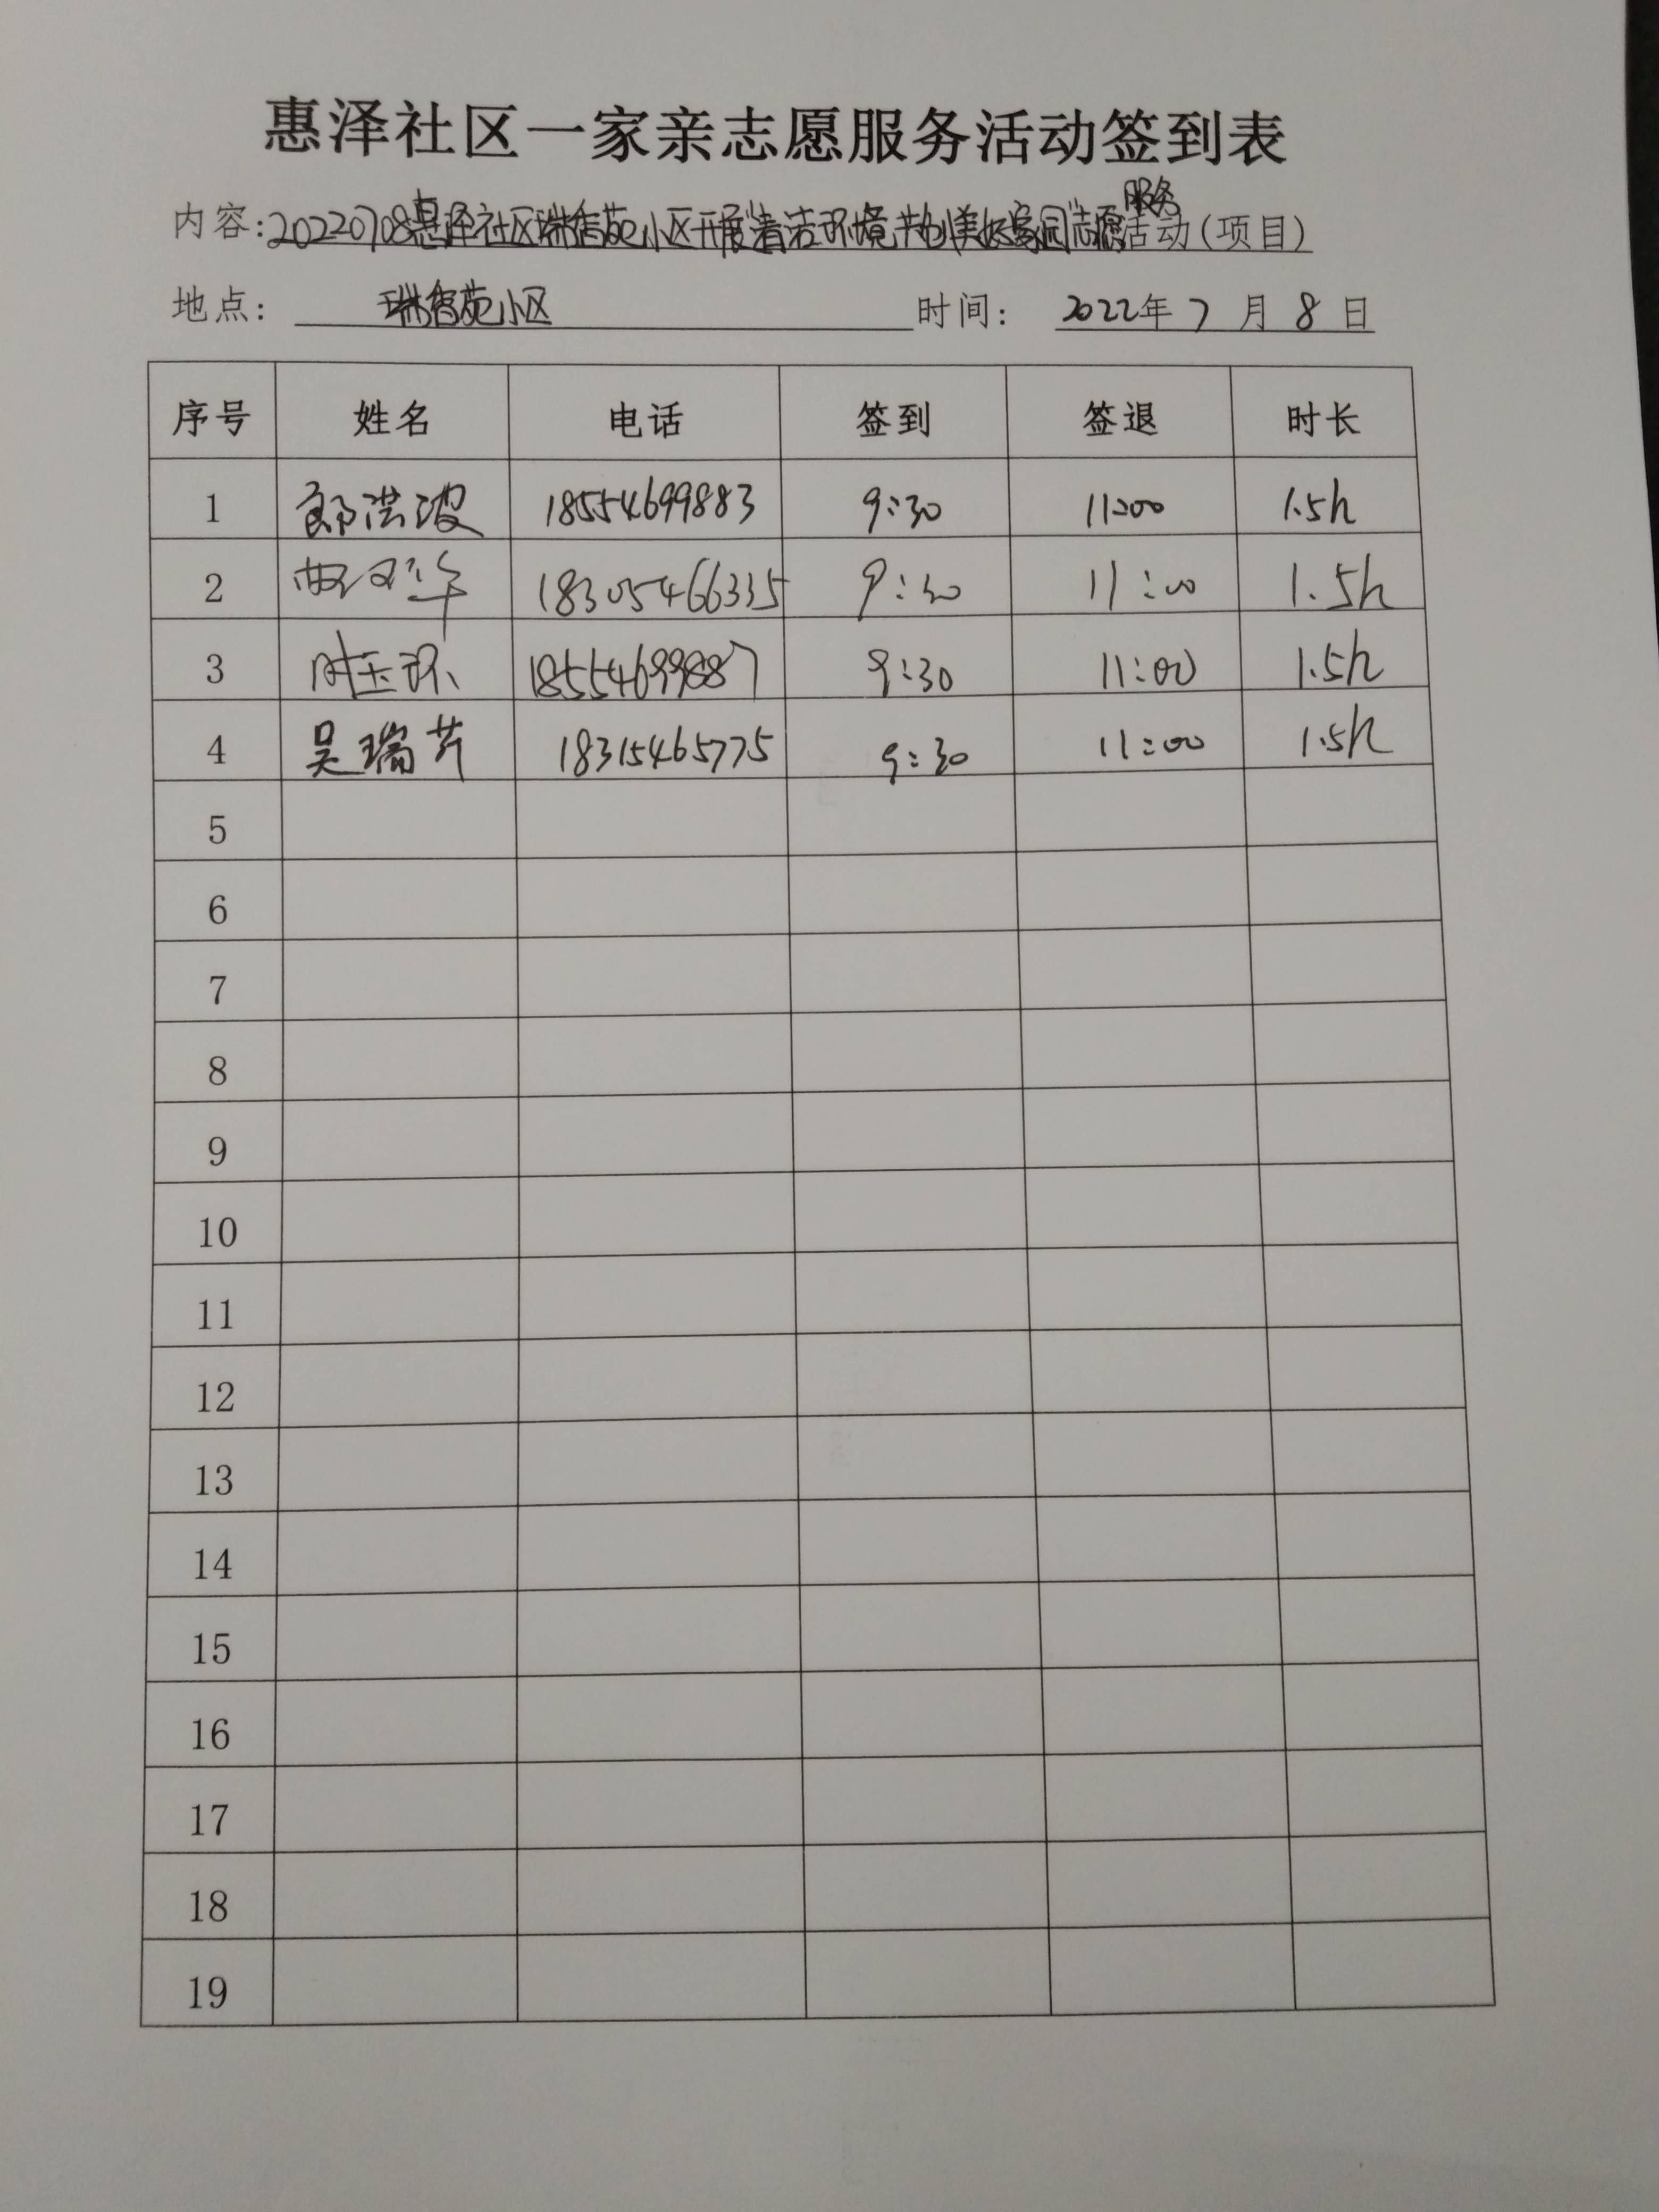 惠泽社区一家亲志愿服务活动签到表
内容:20220708惠泽社区瑞信苑小区开展"清洁环境 共创美好家园"志愿服务活动(项目)
地点: 瑞信苑小区 时间: 2022年7月8日
序号 姓名 电话 签到 签退 时长
1 郎洪波 18554699883 9:30 11:00 1.5h
2 18305466335 9:30 11:00 1.5h
3 时玉环 18554699887 9:30 11:00 1.5h
4 吴瑞芹 18315465775 9:30 11:00 1.5h
5
6
7
8
9
10
11
12
13
14
15
16
17
18
19